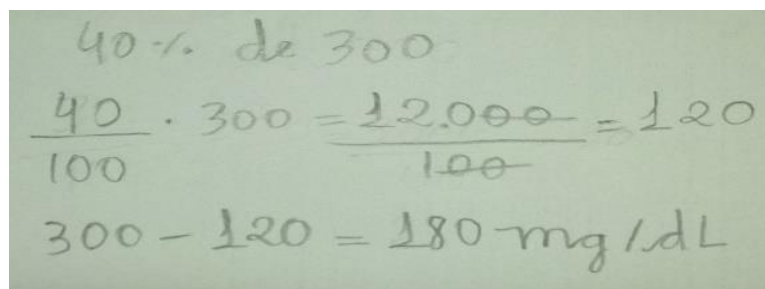 40% de 300
40/100 · 300 = 12.000/100 = 120
300 - 120 = 180 mg/dL